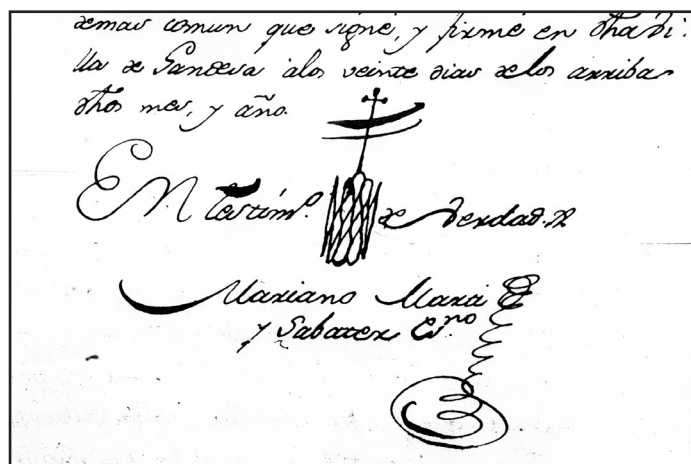 demas comun que signé, y firmé en dha Vi:
lla de Gandesa álos veinte dias delos arriba
dhos mes, y año.
En testimº. de Verdad.
Mariano Maria
y Sabater Esno